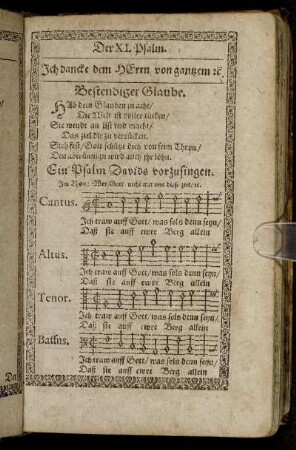 Der XI. Psalm.
Ich dancke dem HErrn von gantzem ꝛc.
Bestendiger Glaube.
HAb dein Glauben in acht/
Die Welt ist voller tücken/
Sie wendt an list und macht/
Das ziel dir zu verrücken.
Steh fest/ Gott schützt dich von seim Thron/
Den abtrünnign wird auch ihr lohn.
Ein Psalm Davids vorzusingen.
Im Thon: Wer Gott nicht mit uns diese zeit/ ꝛc.
Cantus.
Ich traw auff Gott/ was sols denn seyn/
Daß sie auff ewer Berg allein
Altus.
Ich traw auff Gott/ was sols denn seyn/
Daß sie auff ewer Berg allein
Tenor.
Ich traw auff Gott/ was sols denn seyn/
Daß sie auff ewer Berg allein
Bassus.
Ich traw auff Gott/ was sols denn seyn/
Daß sie auff ewer Berg allein